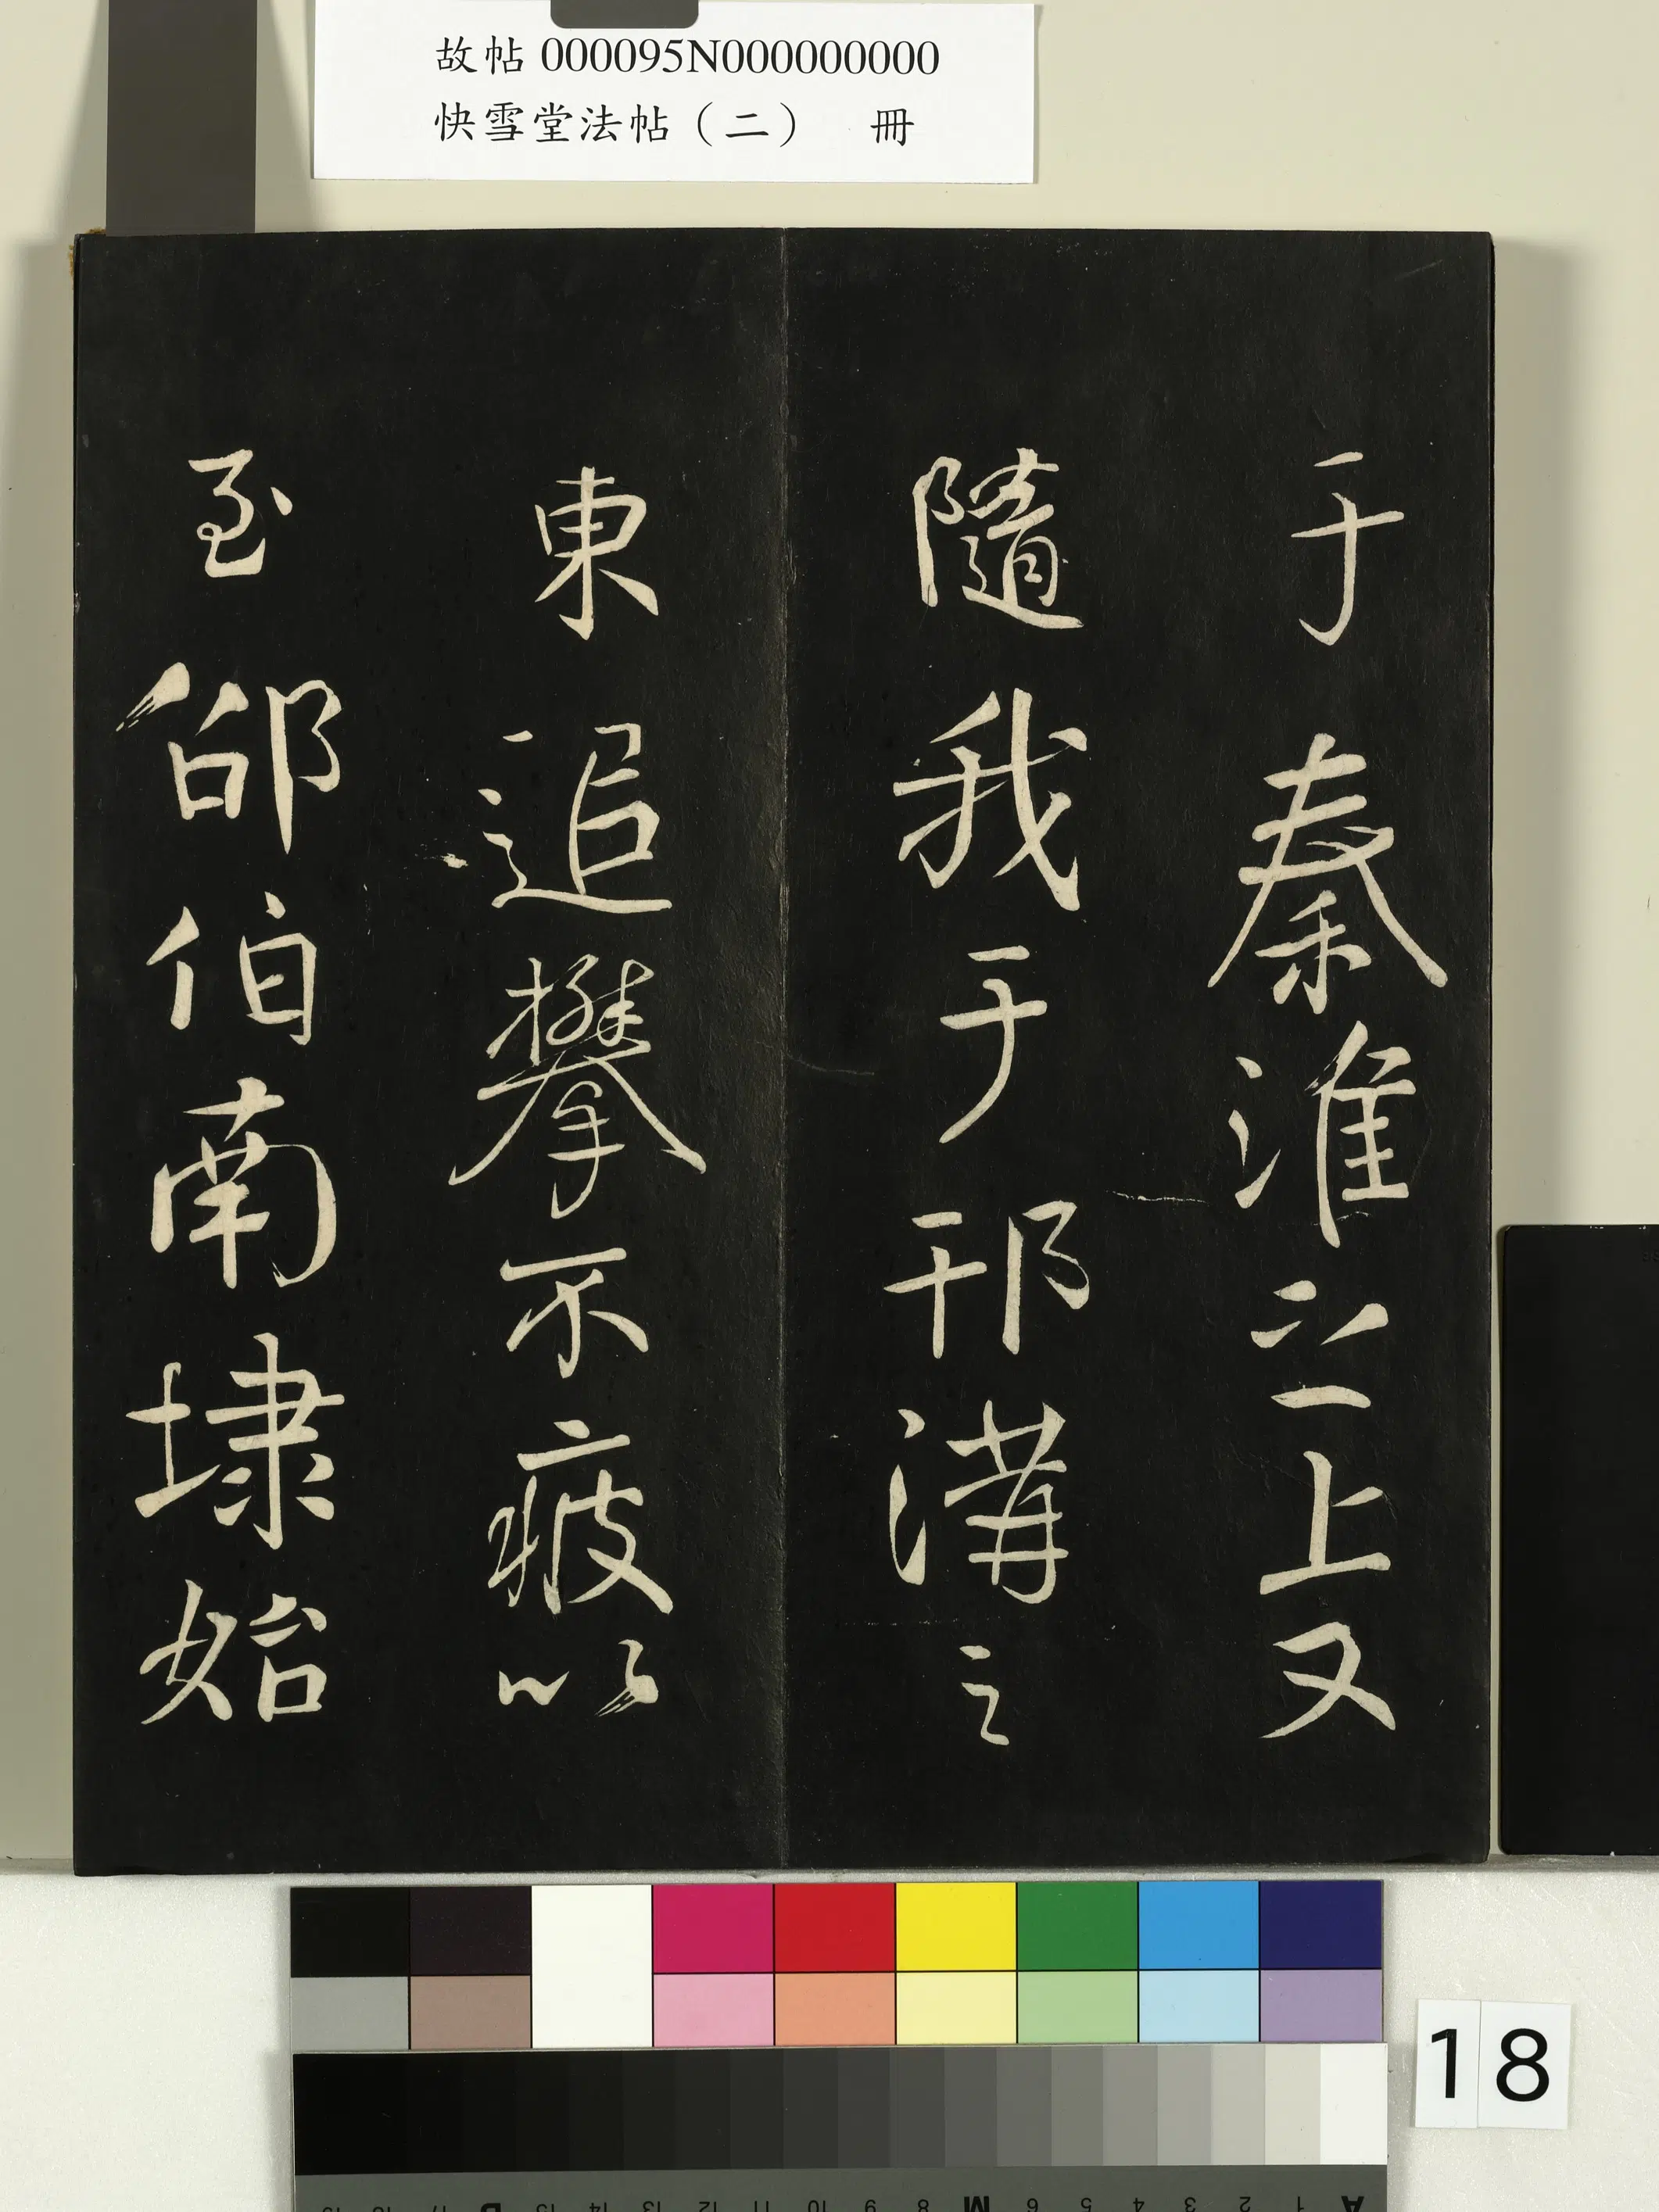 故帖 000095N000000000
快雪堂法帖（二） 冊
于秦淮之上又
隨我于邗溝之
東追攀不疲以
至邵伯南埭始
18